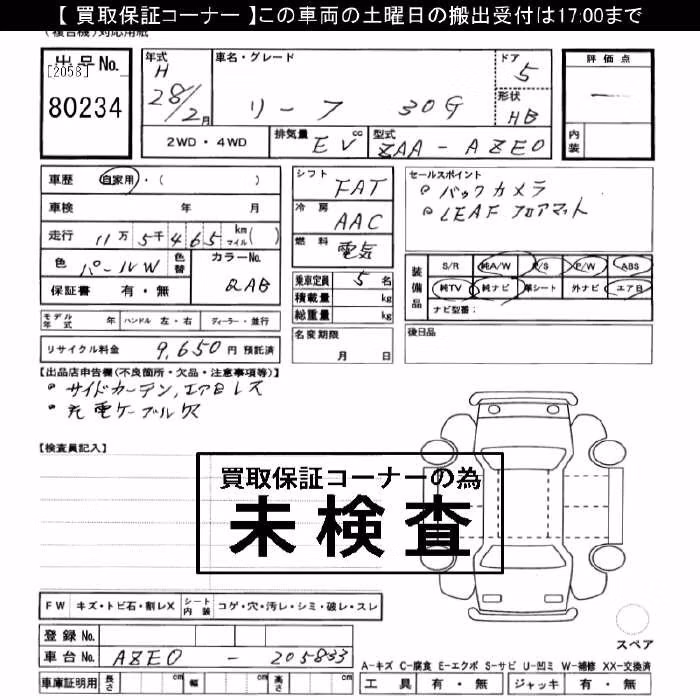 【 買取保証コーナー 】この車両の土曜日の搬出受付は17:00まで
(複合機)対応用紙
出品No.
[2058]
80234
年式
H
28/2月
車名・グレード
リーフ 30G
ドア
5
形状
HB
評価点
—
内装
2WD・4WD
排気量 EV cc
型式 ZAA - AZEO
車歴 自家用・( )
車検 年 月
走行 11万 5千 4 6 5 km マイル( )
色 パールW
色替
カラーNo.
QAB
保証書 有・無
シフト FAT
冷房 AAC
燃料 電気
乗車定員 5 名
積載量 kg
総重量 kg
セールスポイント
・バックカメラ
・LEAF フロアマット
装備品
S/R 純A/W P/S P/W ABS
純TV 純ナビ 革シート 外ナビ エアB
ナビ型番:
モデル年式 年 ハンドル 左・右 ディーラー・並行
名変期限
月 日
後日品
リサイクル料金 9,650 円 預託済
【出品店申告欄(不良箇所・欠品・注意事項等)】
・サイドカーテン,エアBレス
・充電ケーブル欠
【検査員記入】
買取保証コーナーの為
未検査
FW キズ・トビ石・割レX シート内装 コゲ・穴・汚レ・シミ・破レ・スレ
登録No.
車台No. AZEO - 205833
車庫証明用 長さ cm 幅 cm 高さ cm
スペア
A-キズ C-腐食 E-エクボ S-サビ U-凹ミ W-補修 XX-交換済
工具 有・無 ジャッキ 有・無